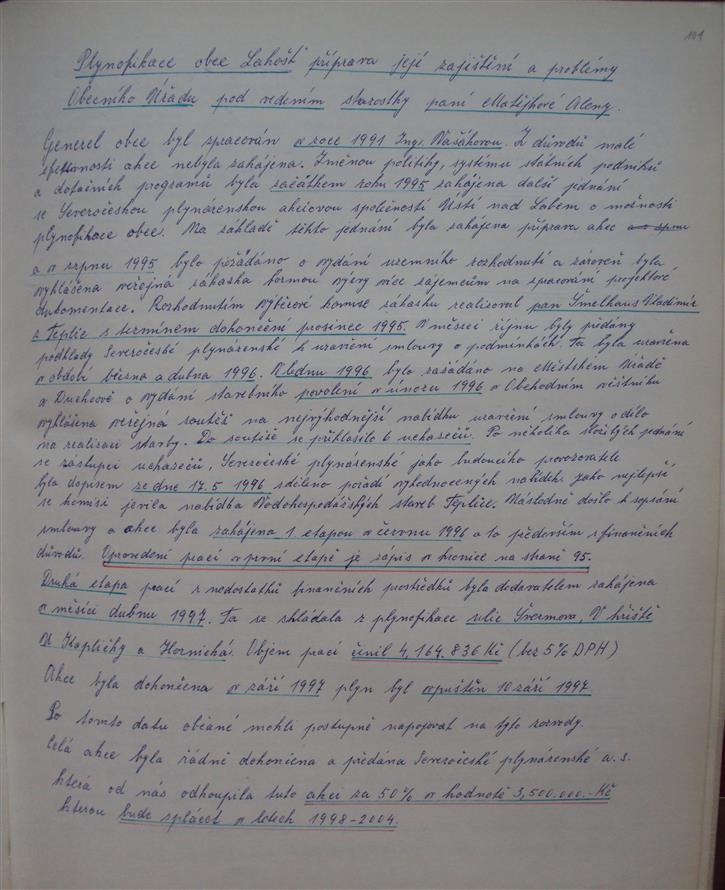 101
Plynofikace obce Lahošť příprava její zajištění a problémy
Obecního Úřadu pod vedením starostky paní Matějkové Aleny.
Generel obce byl zpracován v roce 1991 Ing. Vašákovou. Z důvodů malé
efektivnosti akce nebyla zahájena. Změnou politiky, systému státních podniků
a dotačních programů byla začátkem roku 1995 zahájena další jednání
se Severočeskou plynárenskou akciovou společností Ústí nad Labem o možnosti
plynofikace obce. Na základě těchto jednání byla zahájena příprava akce
a v srpnu 1995 bylo požádáno o vydání uzemního rozhodnutí a zároveň byla
vyhlášena veřejná zakázka formou výzvy více zájemcům na zpracování projektové
dokumentace. Rozhodnutím výběrové komise zakázku realizoval pan Vladimír
z Teplic s termínem dokončení prosinec 1995. V měsíci říjnu byly předány
podklady Severočeské plynárenské k uzavření smlouvy o podmínkách. Ta byla uzavřena
v období března a dubna 1996. V lednu 1996 bylo zažádáno na Městském Úřadě
v Duchcově o vydání stavebního povolení v únoru 1996 v Obchodním věstníku
vyhlášena veřejná soutěž na nejvýhodnější nabídku uzavření smlouvy o dílo
na realizaci stavby. Do soutěže se přihlásilo 6 uchazečů. Po několika složitých jednání
se zástupci uchazečů, Severočeské plynárenské jako budoucího provozovatele
bylo dopisem ze dne 17.5 1996 sděleno pořadí vyhodnocených nabídek. Jako nejlepší
se komisi jevila nabídka Vodohospodářských staveb Teplice. Následně došlo k sepsání
smlouvy a akce byla zahájena 1. etapou v červnu 1996 a to především z finančních
důvodů. Vyprovedení prací v první etapě je zápis v kronice na straně 95.
Druhá etapa prací z nedostatků finančních prostředků byla dodavatelem zahájena
v měsíci dubnu 1997. Ta se skládala z plynofikace ulic Švermova, V hřiště
U Kapličky a Hornická. Objem prací činil 4,164.836 Kč (bez 5% DPH)
Akce byla dokončena v září 1997 plyn byl vpuštěn 10 září 1997.
Po tomto datu občané mohli postupně napojovat na tyto rozvody.
Celá akce byla řádně dokončena a předána Severočeské plynárenské a.s.
která od nás odkoupila tuto akci za 50% v hodnotě 3,500.000.-Kč
kterou bude splácet v letech 1998-2004.